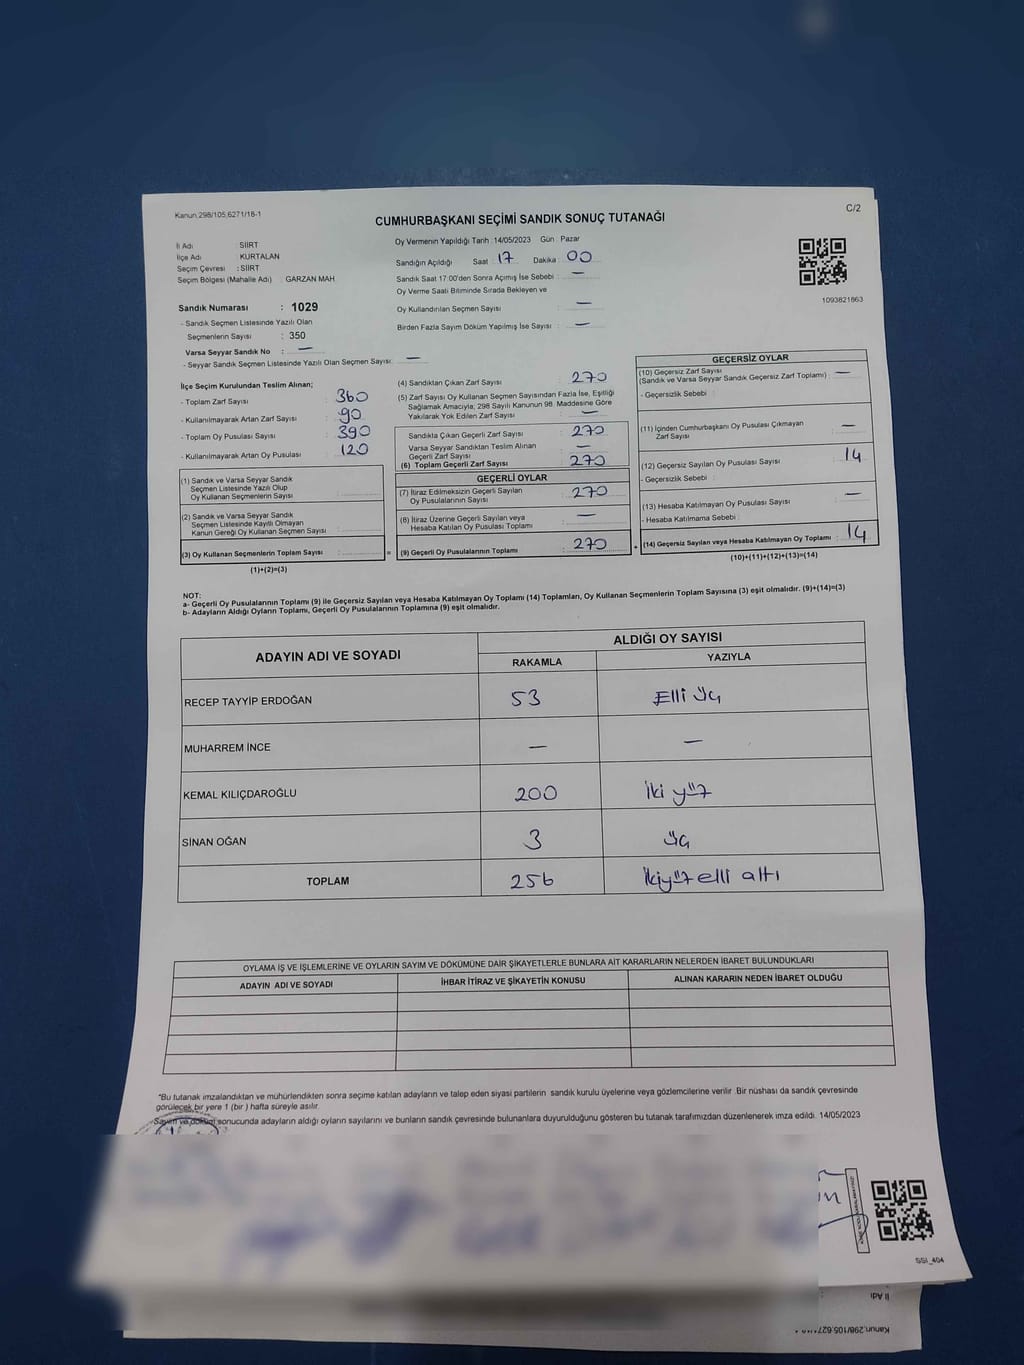 Kanun,298/105,6271/16-1
C/2
CUMHURBAŞKANI SEÇİMİ SANDIK SONUÇ TUTANAĞI
İl Adı : SİİRT
İlçe Adı : KURTALAN
Seçim Çevresi : SİİRT
Seçim Bölgesi (Mahalle Adı) : GARZAN MAH
Oy Vermenin Yapıldığı Tarih :14/05/2023 Gün : Pazar
Sandığın Açıldığı Saat : 17 Dakika : 00
Sandık Saat 17:00'den Sonra Açımış İse Sebebi : —
Oy Verme Saati Bitiminde Sırada Bekleyen ve
Oy Kullandırılan Seçmen Sayısı : —
Birden Fazla Sayım Döküm Yapılmış İse Sayısı : —
1093821863
Sandık Numarası : 1029
- Sandık Seçmen Listesinde Yazılı Olan
Seçmenlerin Sayısı : 350
Varsa Seyyar Sandık No : —
- Seyyar Sandık Seçmen Listesinde Yazılı Olan Seçmen Sayısı: —
İlçe Seçim Kurulundan Teslim Alınan;
- Toplam Zarf Sayısı : 360
- Kullanılmayarak Artan Zarf Sayısı : 90
- Toplam Oy Pusulası Sayısı : 390
- Kullanılmayarak Artan Oy Pusulası : 120
(1) Sandık ve Varsa Seyyar Sandık
Seçmen Listesinde Yazılı Olup
Oy Kullanan Seçmenlerin Sayısı :
(2) Sandık ve Varsa Seyyar Sandık
Seçmen Listesinde Kayıtlı Olmayan
Kanun Gereği Oy Kullanan Seçmen Sayısı :
(3) Oy Kullanan Seçmenlerin Toplam Sayısı : =
(1)+(2)=(3)
(4) Sandıktan Çıkan Zarf Sayısı : 270
(5) Zarf Sayısı Oy Kullanan Seçmen Sayısından Fazla İse, Eşitliği
Sağlamak Amacıyla; 298 Sayılı Kanunun 98. Maddesine Göre
Yakılarak Yok Edilen Zarf Sayısı : —
Sandıkta Çıkan Geçerli Zarf Sayısı : 270
Varsa Seyyar Sandıktan Teslim Alınan
Geçerli Zarf Sayısı : —
(6) Toplam Geçerli Zarf Sayısı : 270
GEÇERLİ OYLAR
(7) İtiraz Edilmeksizin Geçerli Sayılan
Oy Pusulalarının Sayısı : 270
(8) İtiraz Üzerine Geçerli Sayılan veya
Hesaba Katılan Oy Pusulası Toplamı : —
(9) Geçerli Oy Pusulalarının Toplamı : 270 +
GEÇERSİZ OYLAR
(10) Geçersiz Zarf Sayısı
(Sandık ve Varsa Seyyar Sandık Geçersiz Zarf Toplamı) : —
- Geçersizlik Sebebi :
(11) İçinden Cumhurbaşkanı Oy Pusulası Çıkmayan
Zarf Sayısı : —
(12) Geçersiz Sayılan Oy Pusulası Sayısı : 14
- Geçersizlik Sebebi :
(13) Hesaba Katılmayan Oy Pusulası Sayısı : —
- Hesaba Katılmama Sebebi :
(14) Geçersiz Sayılan veya Hesaba Katılmayan Oy Toplamı : 14
(10)+(11)+(12)+(13)=(14)
NOT:
a- Geçerli Oy Pusulalarının Toplamı (9) ile Geçersiz Sayılan veya Hesaba Katılmayan Oy Toplamı (14) Toplamları, Oy Kullanan Seçmenlerin Toplam Sayısına (3) eşit olmalıdır. (9)+(14)=(3)
b- Adayların Aldığı Oyların Toplamı, Geçerli Oy Pusulalarının Toplamına (9) eşit olmalıdır.
ADAYIN ADI VE SOYADI ALDIĞI OY SAYISI
RAKAMLA YAZIYLA
RECEP TAYYİP ERDOĞAN 53 Elli üç
MUHARREM İNCE — —
KEMAL KILIÇDAROĞLU 200 İki yüz
SİNAN OĞAN 3 üç
TOPLAM 256 İkiyüz elli altı
OYLAMA İŞ VE İŞLEMLERİNE VE OYLARIN SAYIM VE DÖKÜMÜNE DAİR ŞİKAYETLERLE BUNLARA AİT KARARLARIN NELERDEN İBARET BULUNDUKLARI
ADAYIN ADI VE SOYADI İHBAR İTİRAZ VE ŞİKAYETİN KONUSU ALINAN KARARIN NEDEN İBARET OLDUĞU
*Bu tutanak imzalandıktan ve mühürlendikten sonra seçime katılan adayların ve talep eden siyasi partilerin sandık kurulu üyelerine veya gözlemcilerine verilir .Bir nüshası da sandık çevresinde
görülecek bir yere 1 (bir ) hafta süreyle asılır.
Sayım ve döküm sonucunda adayların aldığı oyların sayılarını ve bunların sandık çevresinde bulunanlara duyurulduğunu gösteren bu tutanak tarafımızdan düzenlenerek imza edildi. 14/05/2023
SSI_404
İl Adı